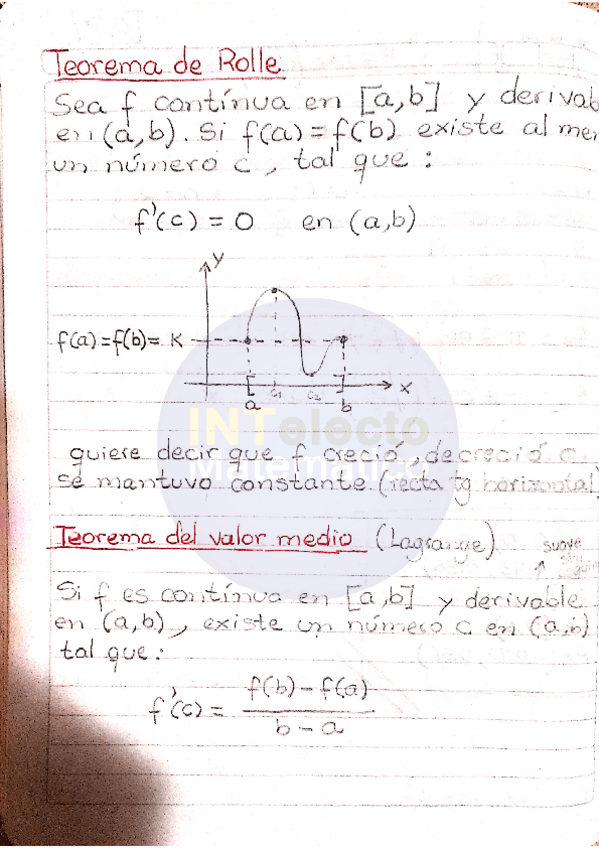 Teorema de Rolle
Sea f contínua en [a,b] y derivab
en (a,b). Si f(a) = f(b) existe al men
un número c, tal que:
f'(c) = 0 en (a,b)
y
f(a)=f(b)= K
x
c1 c2
a b
INTelecto
Matemático
quiere decir que f creció, decreció o
se mantuvo constante (recta tg horizontal)
Teorema del valor medio (Lagrange)
suave
sin
Si f es contínua en [a,b] y derivable
en (a,b), existe un número c en (a,b)
tal que:
f'(c) = f(b) - f(a)
b - a